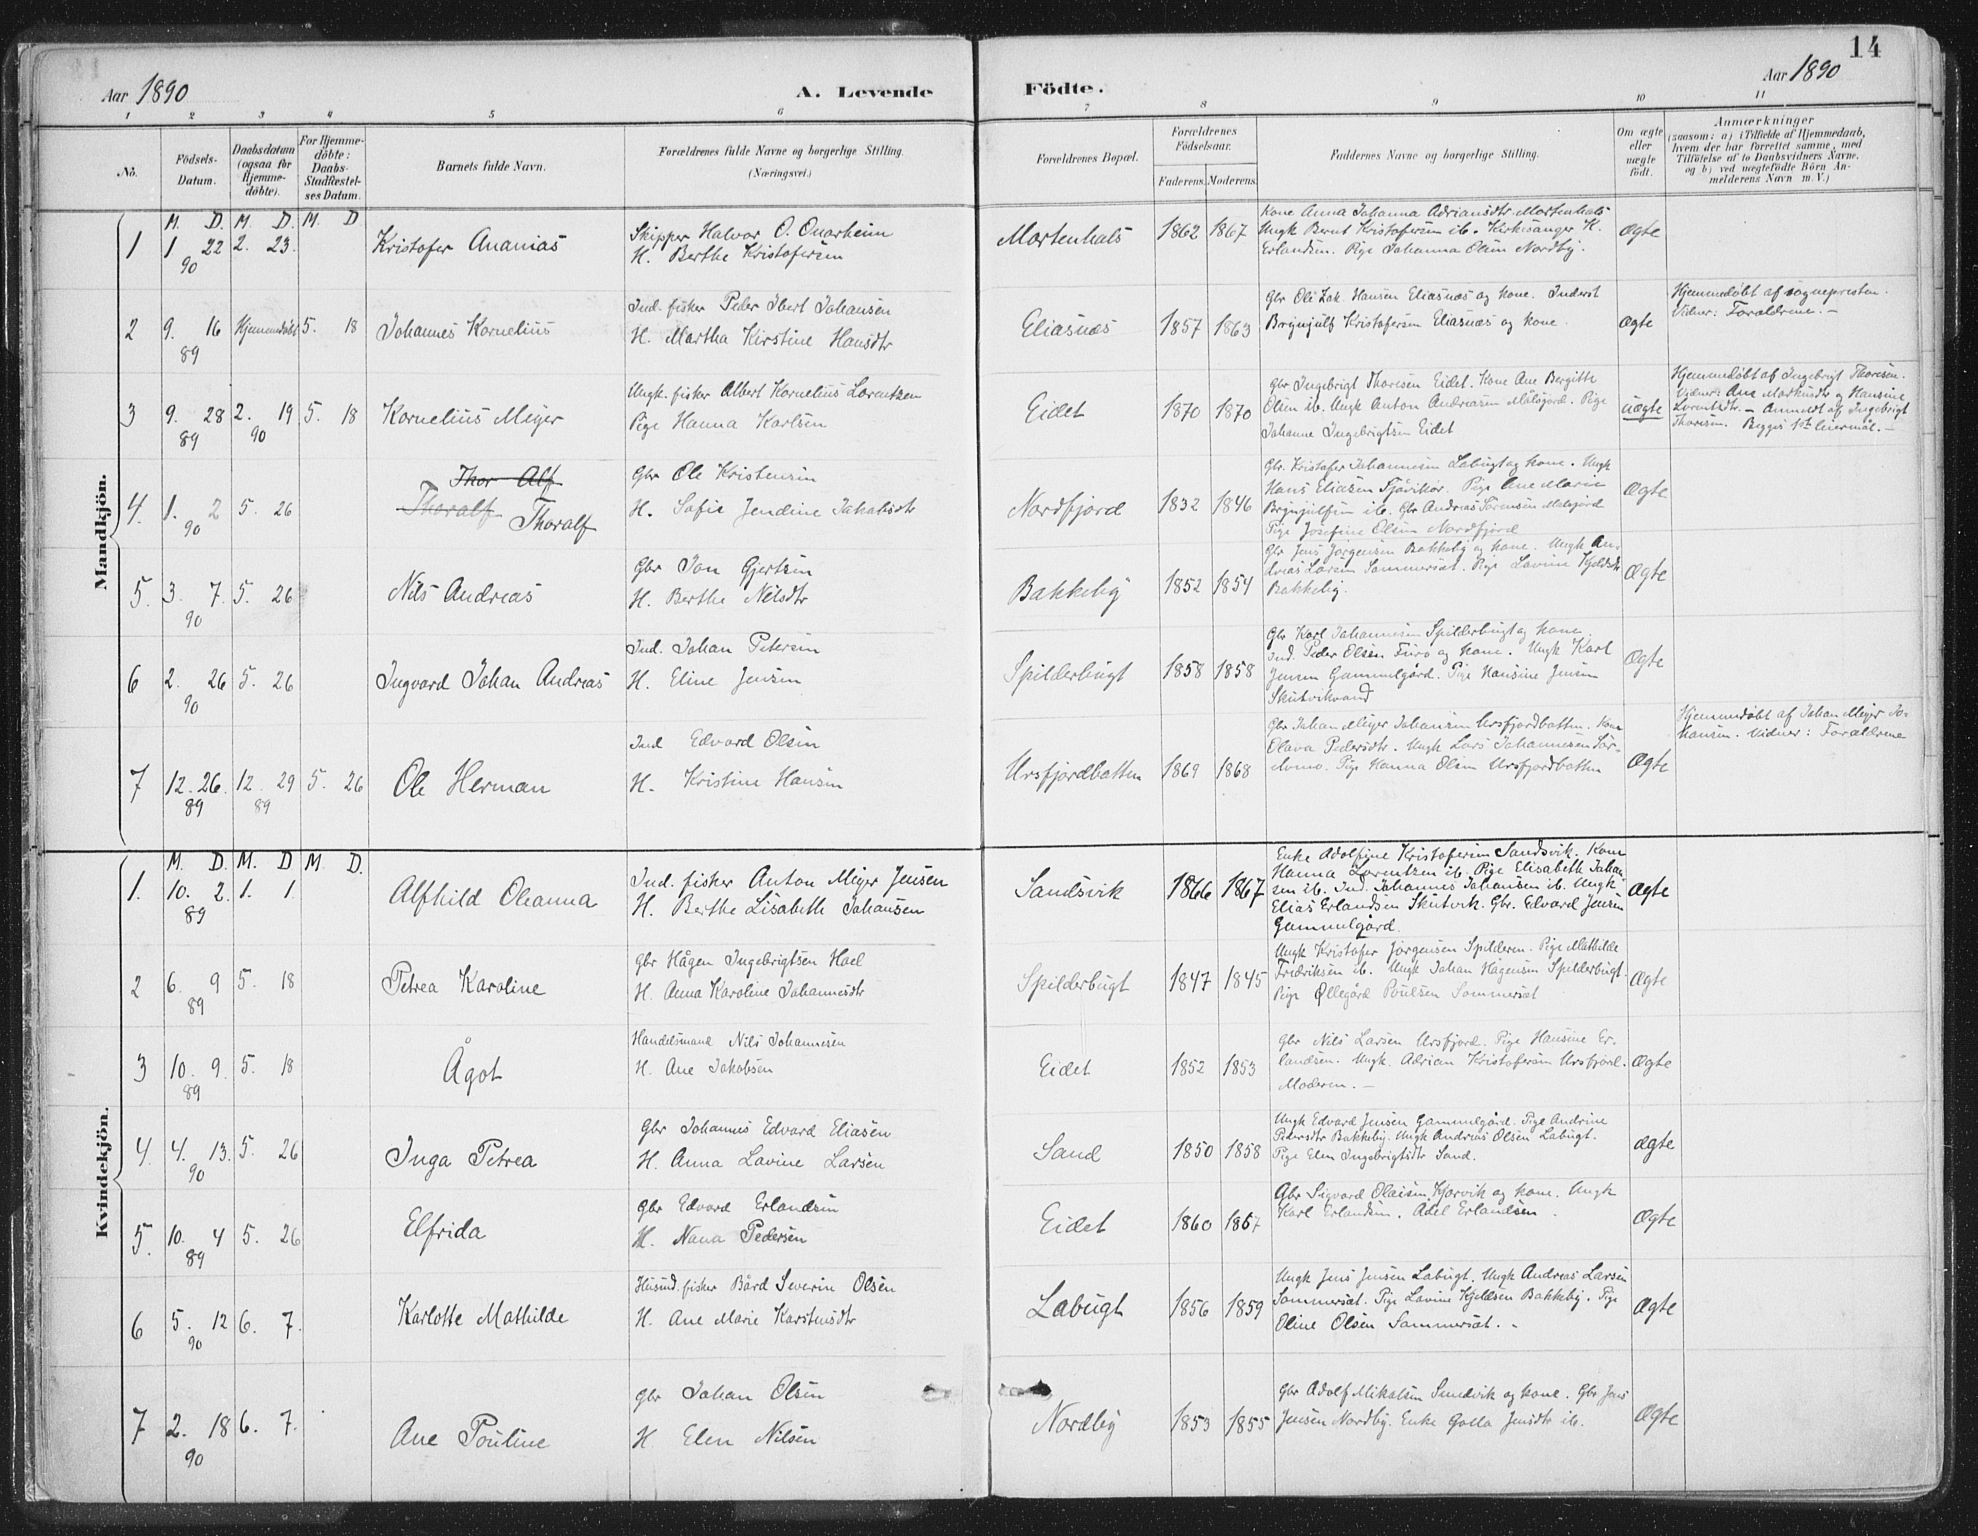 14
Aar 1890
A. Levende
Födte.
Aar 1890
1 2 3 4 5 6 7 8 9 10 11
No.
Födsels-
Datum.
Daabsdatum
(ogsaa for
Hjemme-
döbte).
For Hjemme-
döbte:
Daabs-
Stadfæstel-
ses Datum.
Barnets fulde Navn.
Forældrenes fulde Navne og borgerlige Stilling.
(Næringsvei.)
Forældrenes Bopæl.
Forældrenes
Födselsaar.
Faderens. Moderens.
Faddernes Navne og borgerlige Stilling.
Om ægte
eller
uægte
födt.
Anmærkninger
(saasom: a) i Tilfælde af Hjemmedaab,
hvem der har forrettet samme, med
Tilföielse af to Daabsvidners Navne,
og b) ved uægtefödte Börn An-
melderens Navn m. V.)
Mandkjön.
M. D. M. D. M. D
1 1 22 2. 23.
90
Kristofer Ananias
Skipper Halvor O. Onarheim
H. Berthe Kristofersen
Mortenhals 1862 1867
Kone Anna Johanna Adriansdtr Mortenhals
Ungk Bernt Kristofersen ib. Kirkesanger K.
Erlandsen. Pige Johanna Olsen Nordby.
Ægte
2 9. 16 Hjemmedøbt 5. 18
89
Johannes Kornelius
Ind. fisker Peder Ibert Johansen
H. Martha Kirstine Hansdtr
Eliasnæs 1857 1863
Gbr Ole Zak. Hansen Eliasnæs og kone. Inderst
Brynjulf Kristofersen Eliasnæs og kone.
Ægte
Hjemmedøbt af sognepresten.
Vidner: Forældrene. –
3 9. 28 2. 19 5. 18
89 90
Kornelius Meyer
Ungk. fisker Albert Kornelius Lorentzen
Pige Hanna Karlsen
Eidet 1870 1870
Gbr Ingebrigt Thoresen Eidet. Kone Ane Bergitte
Olsen ib. Ungk Anton Andreasen Målsjord. Pige
Johanne Ingebrigtsen Eidet
uægte
Hjemmedøbt af Ingebrigt Thoresen.
Vidner: Ane Markusdtr og Hansine
Lorentsdtr. – Anmeldt af Ingebrigt
Thoresen. Begges 1ste leiermål. –
4. 1. 2 5. 26
90
Thor Alf
Thoralf Thoralf
Gbr Ole Kristensen
H. Sofie Jendine Jakobsdtr
Nordfjord 1832 1846
Gbr. Kristofer Johannesen Labugt og kone. Ungk
Hans Eliasen . Pige Ane Marie
Brynjulfsen ib. Gbr Andreas Sørensen Målsjord
Pige Josefine Olsen Nordfjord
Ægte
5. 3. 7. 5. 26
90
Nils Andreas
Gbr Jon Gjertsen
H. Berthe Nilsdtr
Bakkeby 1852 1854
Gbr Jens Jørgensen Bakkeby og kone. Ungk An-
dreas Larsen Sommersæt. Pige Lavine Kjeldsdtr
Bakkeby.
Ægte
6 2. 26 5. 26
90
Ingvard Johan Andreas
Ind. Johan Petersen
H. Eline Jensen
Spilderbugt 1858 1858
Gbr Karl Johannesen Spilderbugt og kone
Ind. Peder Olsen Furø og kone. Ungk Karl
Jensen Gammelgård. Pige Hansine Jensen
Skutvikvand
Ægte
7 12. 26. 12. 29 5. 26
89 89
Ole Herman
Ind Edvard Olsen
H. Kristine Hansen
Ursfjordbotten 1869 1868
Gbr Johan Meyer Johansen Ursfjordbotten. Kone
Olava Pedersdtr. Ungk Lars Johannesen Sør-
. Pige Hanna Olsen Ursfjordbotten
Ægte
Hjemmedøbt af Johan Meyer Jo-
hansen. Vidner: Forældrene
Kvindekjön.
M. D. M. D M. D.
1. 10. 2. 1. 1
89
Alfhild Oleanna
Ind. fisker Anton Meyer Jensen
H. Berthe Lisabeth Johansen
Sandsvik 1866 1867
Enke Adolfine Kristofersen Sandsvik. Kone
Hanna Lorentzen ib. Pige Elisabeth Johan
sen ib. Ind. Johannes Johansen ib. Ungk
Elias Erlandsen Skutvik. Gbr. Edvard Jensen
Gammelgård.
Ægte
2 6. 9 5. 18
89
Petrea Karoline
Gbr Hågen Ingebrigtsen Hael
H. Anna Karoline Johannesdtr
Spilderbugt 1847 1845
Ungk Kristofer Jørgensen Spilderen. Pige Mathilde
Fredriksen ib. Ungk Johan Hagensen Spilderbugt.
Pige Øllegård Poulsen Sommersæt
Ægte
3 10. 9. 5. 18
89
Ågot
Handelsmand Nils Johannesen
H. Ane Jakobsen
Eidet 1852 1853
Gbr Nils Larsen Ursfjord. Pige Hansine Er-
landsen. Ungk. Adrian Kristofersen Ursfjord.
Moderen. –
Ægte
4. 4. 13. 5. 26
90
Inga Petrea
Gbr Johannes Edvard Eliasen
H. Anna Lovine Larsen
Sand 1850 1858
Ungk Edvard Jensen Gammelgård. Pige Andrine
Pedersdtr Bakkeby. Ungk Andreas Olsen Labugt.
Pige Elen Ingebrigtsdtr Sand.
Ægte
5. 10. 4 5. 26
89
Elfrida
Gbr Edvard Erlandsen
H. Nana Pedersen
Eidet 1860 1867
Gbr Sigvard Olaisen Kjorvik og kone. Ungk
Karl Erlandsen. Adel Erlandsen.
Ægte
6 5. 12 6. 7.
90
Karlotte Mathilde
Husmd. fisker Bård Severin Olsen
H. Ane Marie Karstensdtr
Labugt 1856 1859
Ungk Jens Jensen Labugt. Ungk Andreas Larsen
Sommersæt. Pige Lovine Kjeldsen Bakkeby. Pige
Oline Olsen Sommersæt. –
Ægte
7 2. 18 6. 7.
90
Ane Pouline
gbr Johan Olsen
H Elen Nilsen
Nordby 1853 1855
Gbr Adolf Mikalsen Sandvik og kone. Gbr Jens
Jensen Nordby. Enke Jensdtr ib.
Ægte